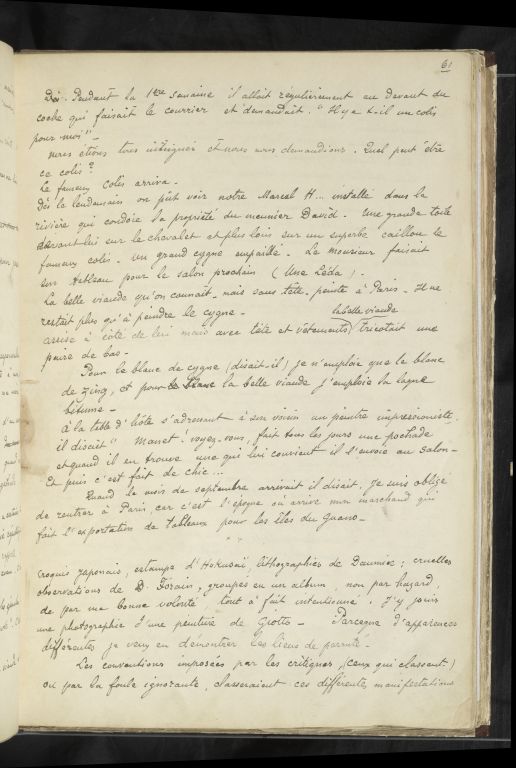 61
Dès. Pendant la 1ère semaine il allait régulièrement au devant du
coche qui faisait le courrier et demandait. "Il y a t-il un colis
pour moi" _
nous étions tous intrigués et nous nous demandions. Quel peut être
ce colis?
Le fameux colis arriva.
Dès le lendemain on pût voir notre Marcel H... installé dans la
rivière qui cotoie la propriété du meunier David. Une grande toile
devant lui sur le chevalet et plus loin sur un superbe caillou le
fameux colis. Un grand cygne empaillé. Le monsieur faisait
son tableau pour le salon prochain (Une Léda).
La belle viande qu'on connait, mais sans tête, peinte à Paris. Il ne
restait plus qu'à peindre le cygne _
la belle viande
assise à côté de lui mais avec tête et vêtements) tricotait une
paire de bas _
Pour le blanc de cygne (disait-il) je n'emploie que le blanc
de Zing, et pour la belle viande j'emploie la laque
bitume _
à la table d'hôte s'adressant à son voisin un peintre impressioniste.
il disait " Manet, voyez-vous, fait tous les jours une pochade
et quand il en trouve une qui lui convient il l'envoie au Salon _
Et puis c'est fait de chic ...
Quand le mois de septembre arrivait il disait. Je suis obligé
de rentrer à Paris, car c'est l'époque où arrive mon marchand qui
fait l'exportation de tableaux pour les îles du Guano _
Croquis japonais, estampes d'Hokusaï, lithographies de Daumier, cruelles
observations de Forain, groupés en un album, non par hazard,
de par ma bonne volonté, tout à fait intentionné. J'y joins
une photographie d'une peinture de Giotto _ Parceque d'apparences
différentes je veux en démontrer les liens de parenté _
Les conventions imposées par les critiques (ceux qui classent)
ou par la foule ignorante, classeraient ces différentes manifestations